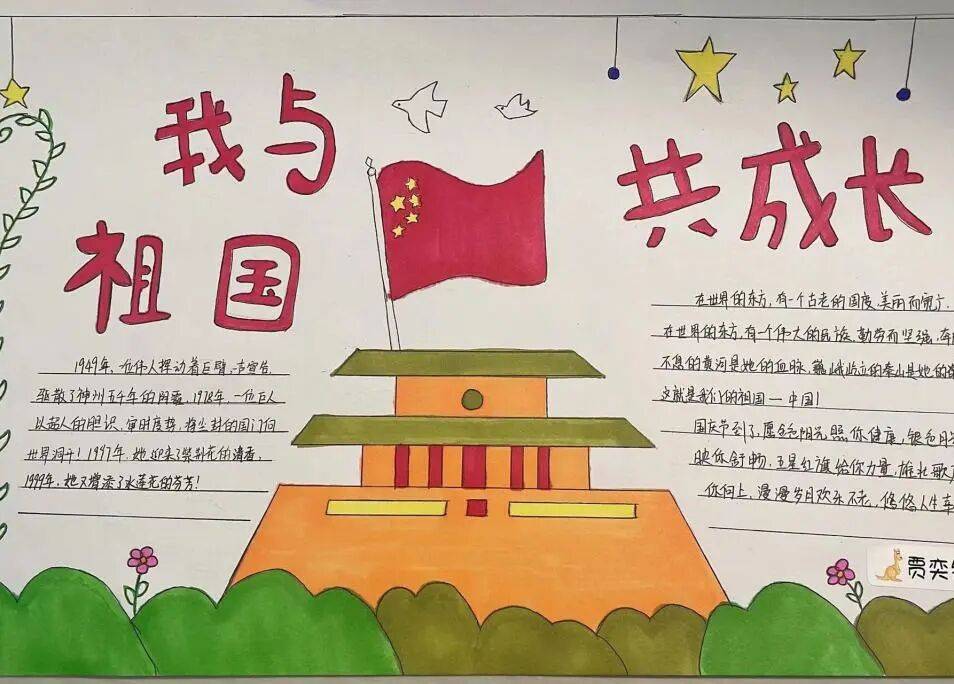 我与
祖国
共成长
1949年，一位伟人挥动着巨臂，一声宣告
驱散了神州五千年的阴霾，1978年，一位巨人
以超人的胆识，审时度势，将尘封的国门向
世界洞开！1997年，她迎来了紫荆花的清香，
1999年，她又增添了水莲花的芬芳！
在世界的东方，有一个古老的国度，美丽而宽广，
在世界的东方，有一个伟大的民族，勤劳而坚强，奔
不息的黄河是她的血脉，巍峨屹立的泰山是她的
这就是我们的祖国一中国！
国庆节到了，愿金色阳光照你健康，银色月
映你舒畅，五星红旗给你力量，雄壮歌
你向上，漫漫岁月欢乐不老，悠悠人生
贾奕